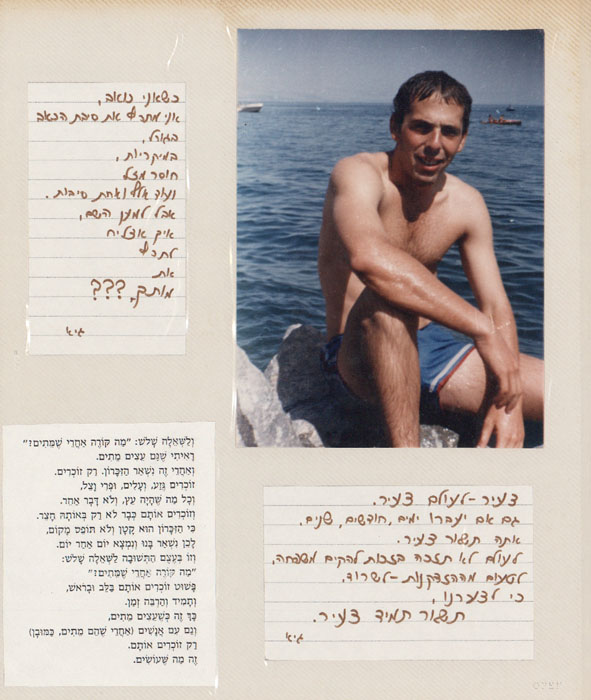 כשאני כואב,
אני מתרץ את סיבת הכאב
בגורל,
במקריות,
חוסר מזל
ועוד אלף ואחת סיבות.
אבל למען השם,
איך אצליח
לתרץ
את
מותך, ???
גיא
וְלַשְּׁאֵלָה שָׁלֹשׁ: "מַה קּוֹרֶה אַחֲרֵי שֶׁמֵּתִים?"
רָאִיתִי שֶׁגַּם עֵצִים מֵתִים.
וְאַחֲרֵי זֶה נִשְׁאַר הַזִּכָּרוֹן. רַק זוֹכְרִים.
זוֹכְרִים גֶּזַע, וְעָלִים, וּפְרִי וָצֵל,
וְכָל מַה שֶּׁהָיָה עֵץ, וְלֹא דָּבָר אַחֵר.
וְזוֹכְרִים אוֹתָם כְּבָר לֹא רַק בְּאוֹתָהּ חָצֵר.
כִּי הַזִּכָּרוֹן הוּא קָטָן וְלֹא תּוֹפֵס מָקוֹם,
לָכֵן נִשְׁאַר בָּנוּ וְנִמְצָא יוֹם אַחַר יוֹם.
וְזוֹ בְּעֶצֶם הַתְּשׁוּבָה לַשְּׁאֵלָה שָׁלֹשׁ:
"מַה קּוֹרֶה אַחֲרֵי שֶׁמֵּתִים?"
פָּשׁוּט זוֹכְרִים אוֹתָם בַּלֵּב וּבָרֹאשׁ,
וְתָמִיד וְהַרְבֵּה זְמַן.
כָּךְ זֶה כְּשֶׁעֵצִים מֵתִים,
וְגַם עִם אֲנָשִׁים (אַחֲרֵי שֶׁהֵם מֵתִים, כַּמּוּבָן)
רַק זוֹכְרִים אוֹתָם.
זֶה מַה שֶּׁעוֹשִׂים.
צעיר-לעולם צעיר.
גם אם יעברו ימים, חודשים, שנים.
אתה תשאר צעיר.
לעולם לא תזכה בזכות להקים משפחה,
לטעום מההזדקנות-לשרוד.
כי לצערנו,
תשאר תמיד צעיר.
גיא